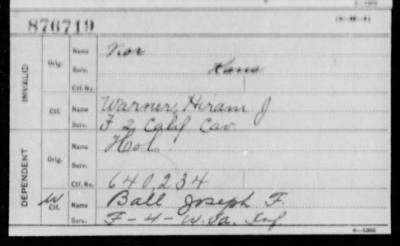 876719
INVALID
Orig.
Name
Serv.
Ctf. No.
Ctf.
Name Warner, Hiram J
Serv. F 2 Calif Cav
DEPENDENT
Orig.
Name
Serv.
Ctf. No. 640,234
W
Ctf.
Name Ball Joseph F.
Serv. F-4-W.Va. Inf.